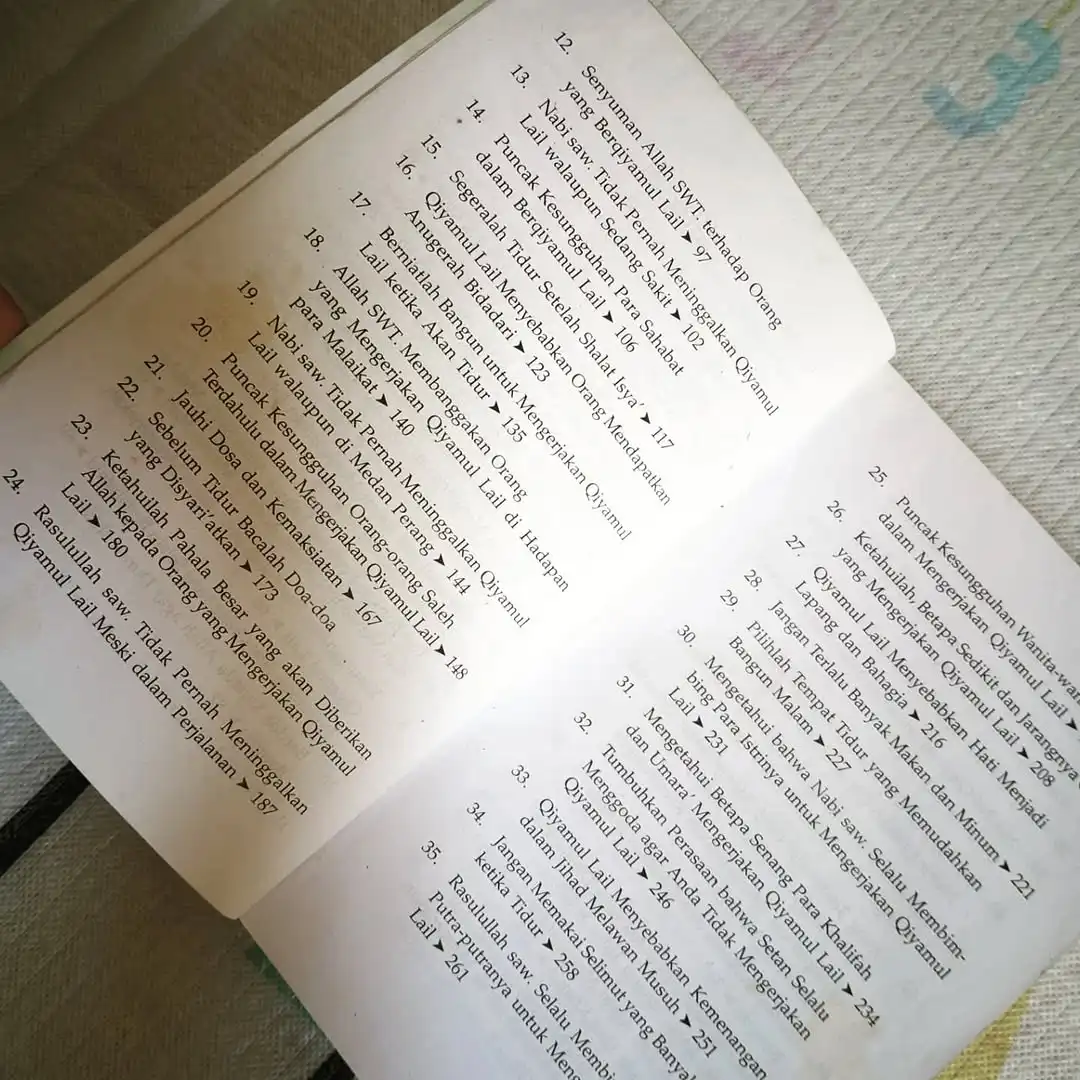 12. Senyuman Allah SWT. terhadap Orang
yang Berqiyamul Lail ➤ 97
13. Nabi saw. Tidak Pernah Meninggalkan Qiyamul
Lail walaupun Sedang Sakit ➤ 102
14. Puncak Kesungguhan Para Sahabat
dalam Berqiyamul Lail ➤ 106
15. Segeralah Tidur Setelah Shalat Isya' ➤ 117
16. Qiyamul Lail Menyebabkan Orang Mendapatkan
Anugerah Bidadari ➤ 123
17. Berniatlah Bangun untuk Mengerjakan Qiyamul
Lail ketika Akan Tidur ➤ 135
18. Allah SWT. Membanggakan Orang
yang Mengerjakan Qiyamul Lail di Hadapan
para Malaikat ➤ 140
19. Nabi saw. Tidak Pernah Meninggalkan Qiyamul
Lail walaupun di Medan Perang ➤ 144
20. Puncak Kesungguhan Orang-orang Saleh
Terdahulu dalam Mengerjakan Qiyamul Lail ➤ 148
21. Jauhi Dosa dan Kemaksiatan ➤ 167
22. Sebelum Tidur Bacalah Doa-doa
yang Disyari'atkan ➤ 173
23. Ketahuilah Pahala Besar yang akan Diberikan
Allah kepada Orang yang Mengerjakan Qiyamul
Lail ➤ 180
24. Rasulullah saw. Tidak Pernah Meninggalkan
Qiyamul Lail Meski dalam Perjalanan ➤ 187
25 Puncak Kesungguhan Wanita-wa
dalam Mengerjakan Qiyamul Lail ➤
26. Ketahuilah, Betapa Sedikit dan Jarangnya
yang Mengerjakan Qiyamul Lail ➤ 208
27. Qiyamul Lail Menyebabkan Hati Menjadi
Lapang dan Bahagia ➤ 216
28. Jangan Terlalu Banyak Makan dan Minum ➤ 221
29. Pilihlah Tempat Tidur yang Memudahkan
Bangun Malam ➤ 227
30. Mengetahui bahwa Nabi saw. Selalu Membim-
bing Para Istrinya untuk Mengerjakan Qiyamul
Lail ➤ 231
31. Mengetahui Betapa Senang Para Khalifah
dan Umara' Mengerjakan Qiyamul Lail ➤ 234
32. Tumbuhkan Perasaan bahwa Setan Selalu
Menggoda agar Anda Tidak Mengerjakan
Qiyamul Lail ➤ 246
33. Qiyamul Lail Menyebabkan Kemenangan
dalam Jihad Melawan Musuh ➤ 251
34. Jangan Memakai Selimut yang Banya
ketika Tidur ➤ 258
35. Rasulullah saw. Selalu Membi
Putra-putranya untuk Meng
Lail ➤ 261